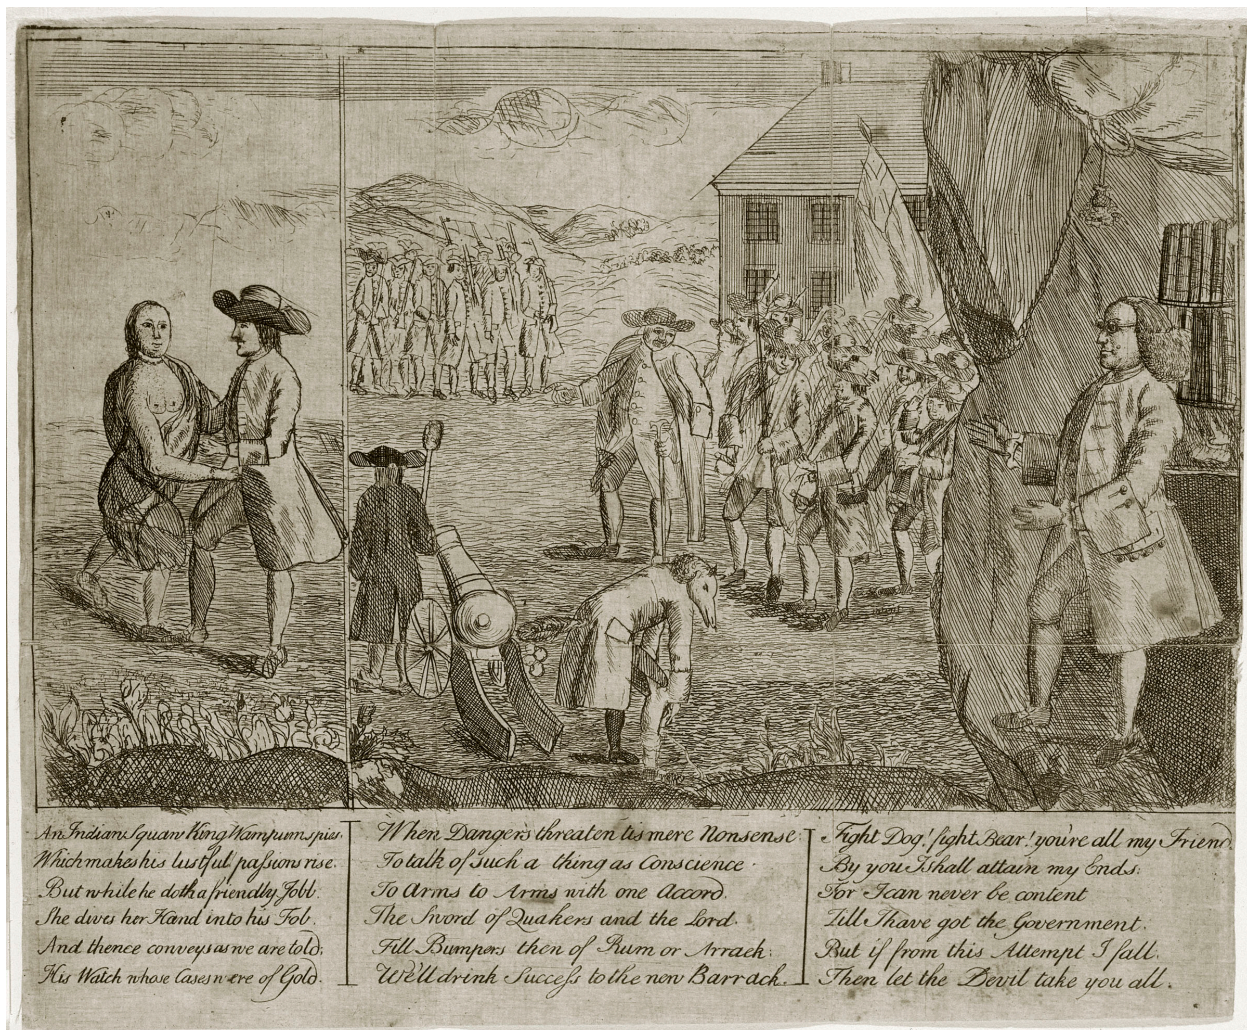 An Indian Squaw King Wampum spies
Which makes his lustful passions rise.
But while he doth a friendly Jobb
She dives her Hand into his Fob
And thence conveys as we are told
His Watch whose Cases were of Gold.
When Dangers threaten tis mere Nonsense
To talk of such a thing as Conscience
To Arms to Arms with one Accord
The Sword of Quakers and the Lord.
Fill Bumpers then of Rum or Arrack
We'll drink Success to the new Barrack.
Fight Dog! fight Bear! you're all my Friend
By you I shall attain my Ends
For I can never be content
Till I have got the Government.
But if from this Attempt I fall
Then let the Devil take you all.